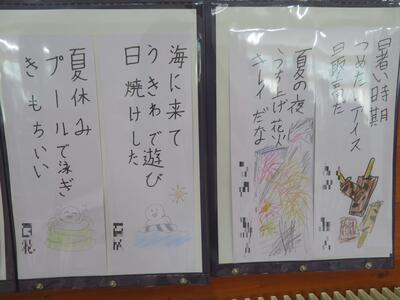 暑い時期
つめたいアイス
最高だ
夏の夜
うち上げ花火
キレイだな
海に来て
うきわで遊び
日焼けした
夏休み
プールで泳ぎ
きもちいい